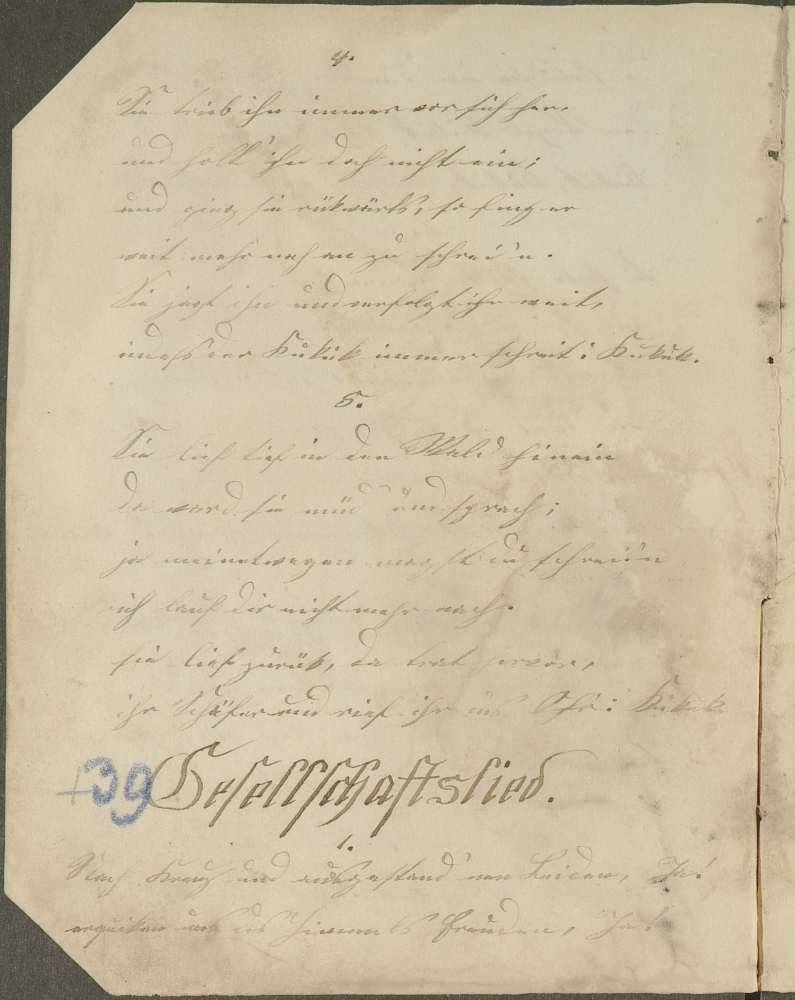 4.
Sie trieb ihn immer vor sich her,
und holt' ihn doch nicht ein;
und ging sie rükwärts, so fing er
weit mehr noch an zu schrei'n.
Sie jagt ihn und verfolgt ihn weit,
indess der Kukuk immer schreit: Kukuk.
5.
Sie lief tief in den Wald hinein
da ward sie müd' und sprach;
ja meinetwegen magst du schrei'n
ich lauf dir nicht mehr nach.
sie lief zurük, da trat hervor,
ihr Schäfer und rief ihr ins Ohr: Kukuk
+39 Gesellschaftslied.
1.
Nach Kreuz und ausgestand'nen Leiden, Ja!
erquiken uns des Himmels Freuden, Ja!